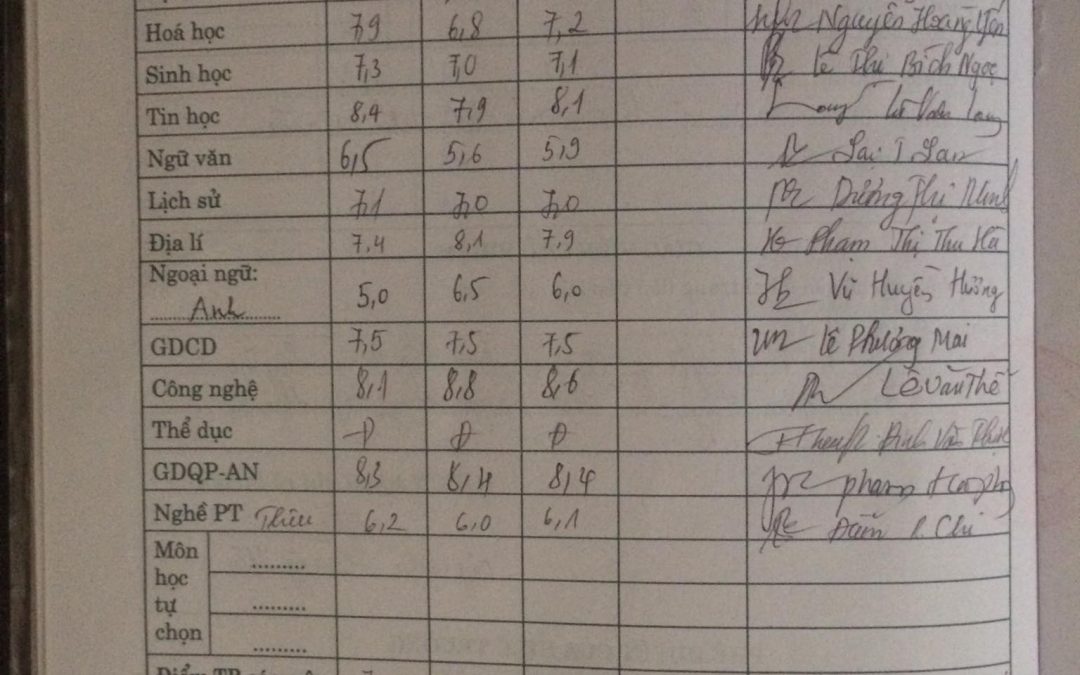 Hoá học 7,9 6,8 7,2 Nguyễn Hoàng Yến
Sinh học 7,3 7,0 7,1 Lê Thị Bích Ngọc
Tin học 8,4 7,9 8,1 Long
Ngữ văn 6,5 5,6 5,9 Lại T Lan
Lịch sử 7,1 7,0 7,0 Dương Thị Minh
Địa lí 7,4 8,1 7,9 Phạm Thị Thu Hà
Ngoại ngữ: 5,0 6,5 6,0 Vũ Huyền Hương
Anh
GDCD 7,5 7,5 7,5 Lê Phương Mai
Công nghệ 8,1 8,8 8,6 Lê Văn Thế
Thể dục Đ Đ Đ Đinh Văn
GDQP-AN 8,3 8,4 8,4 Phạm
Nghề PT Thêu 6,2 6,0 6,1 P. Chi
Môn
học
tự
chọn